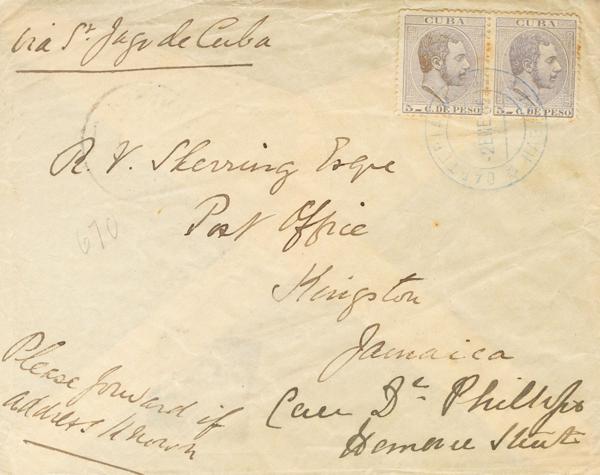 via St. Jago de Cuba
CUBA CUBA
5 C. DE PESO 5 C. DE PESO
R. V. Sherring Esqre
Post Office
Kingston
Jamaica
Care Dr. Phillippo
Street
670
Please forward if
address known